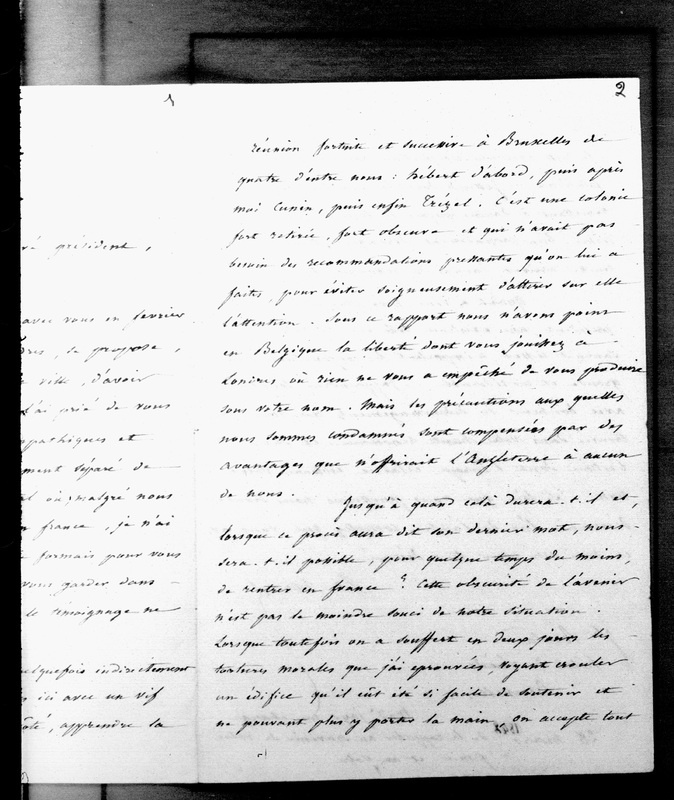 1
ré président,
avec vous en février
dres, se propose,
ville, d'avoir
J'ai prié de vous
mpathiques et
ment séparé de
où, malgré nous
n france, je n'ai
formais pour vous
vous garder dans
le témoignage ne
uelquefois indirectement
ici avec un vif
ôté, apprendre la
2
réunion fortuite et successive à Bruxelles de
quatre d'entre nous : hébert d'abord, puis après
moi Cunin, puis enfin Trézel. C'est une colonie
fort retirée, fort obscure et qui n'avait pas
besoin des recommandations pressantes qu'on lui a
faites, pour éviter soigneusement d'attirer sur elle
l'attention. Sous ce rapport nous n'avons point
en Belgique la liberté dont vous jouissez à
Londres où rien ne vous a empêché de vous produire
sous votre nom. Mais les précautions aux quelles
nous sommes condamnés sont compensées par des
avantages que n'offrirait l'Angleterre à aucun
de nous.
Jusqu'à quand celà durera-t-il et,
lorsque ce procès aura dit son dernier mot, nous
sera-t-il possible, pour quelque temps du moins,
de rentrer en france ? Cette obscurité de l'avenir
n'est pas le moindre souci de notre situation.
Lorsque toutefois on a souffert en deux jours les
tortures morales que j'ai eprouvées, voyant crouler
un édifice qu'il eût été si facile de soutenir et
ne pouvant plus y porter la main, on accepte tout